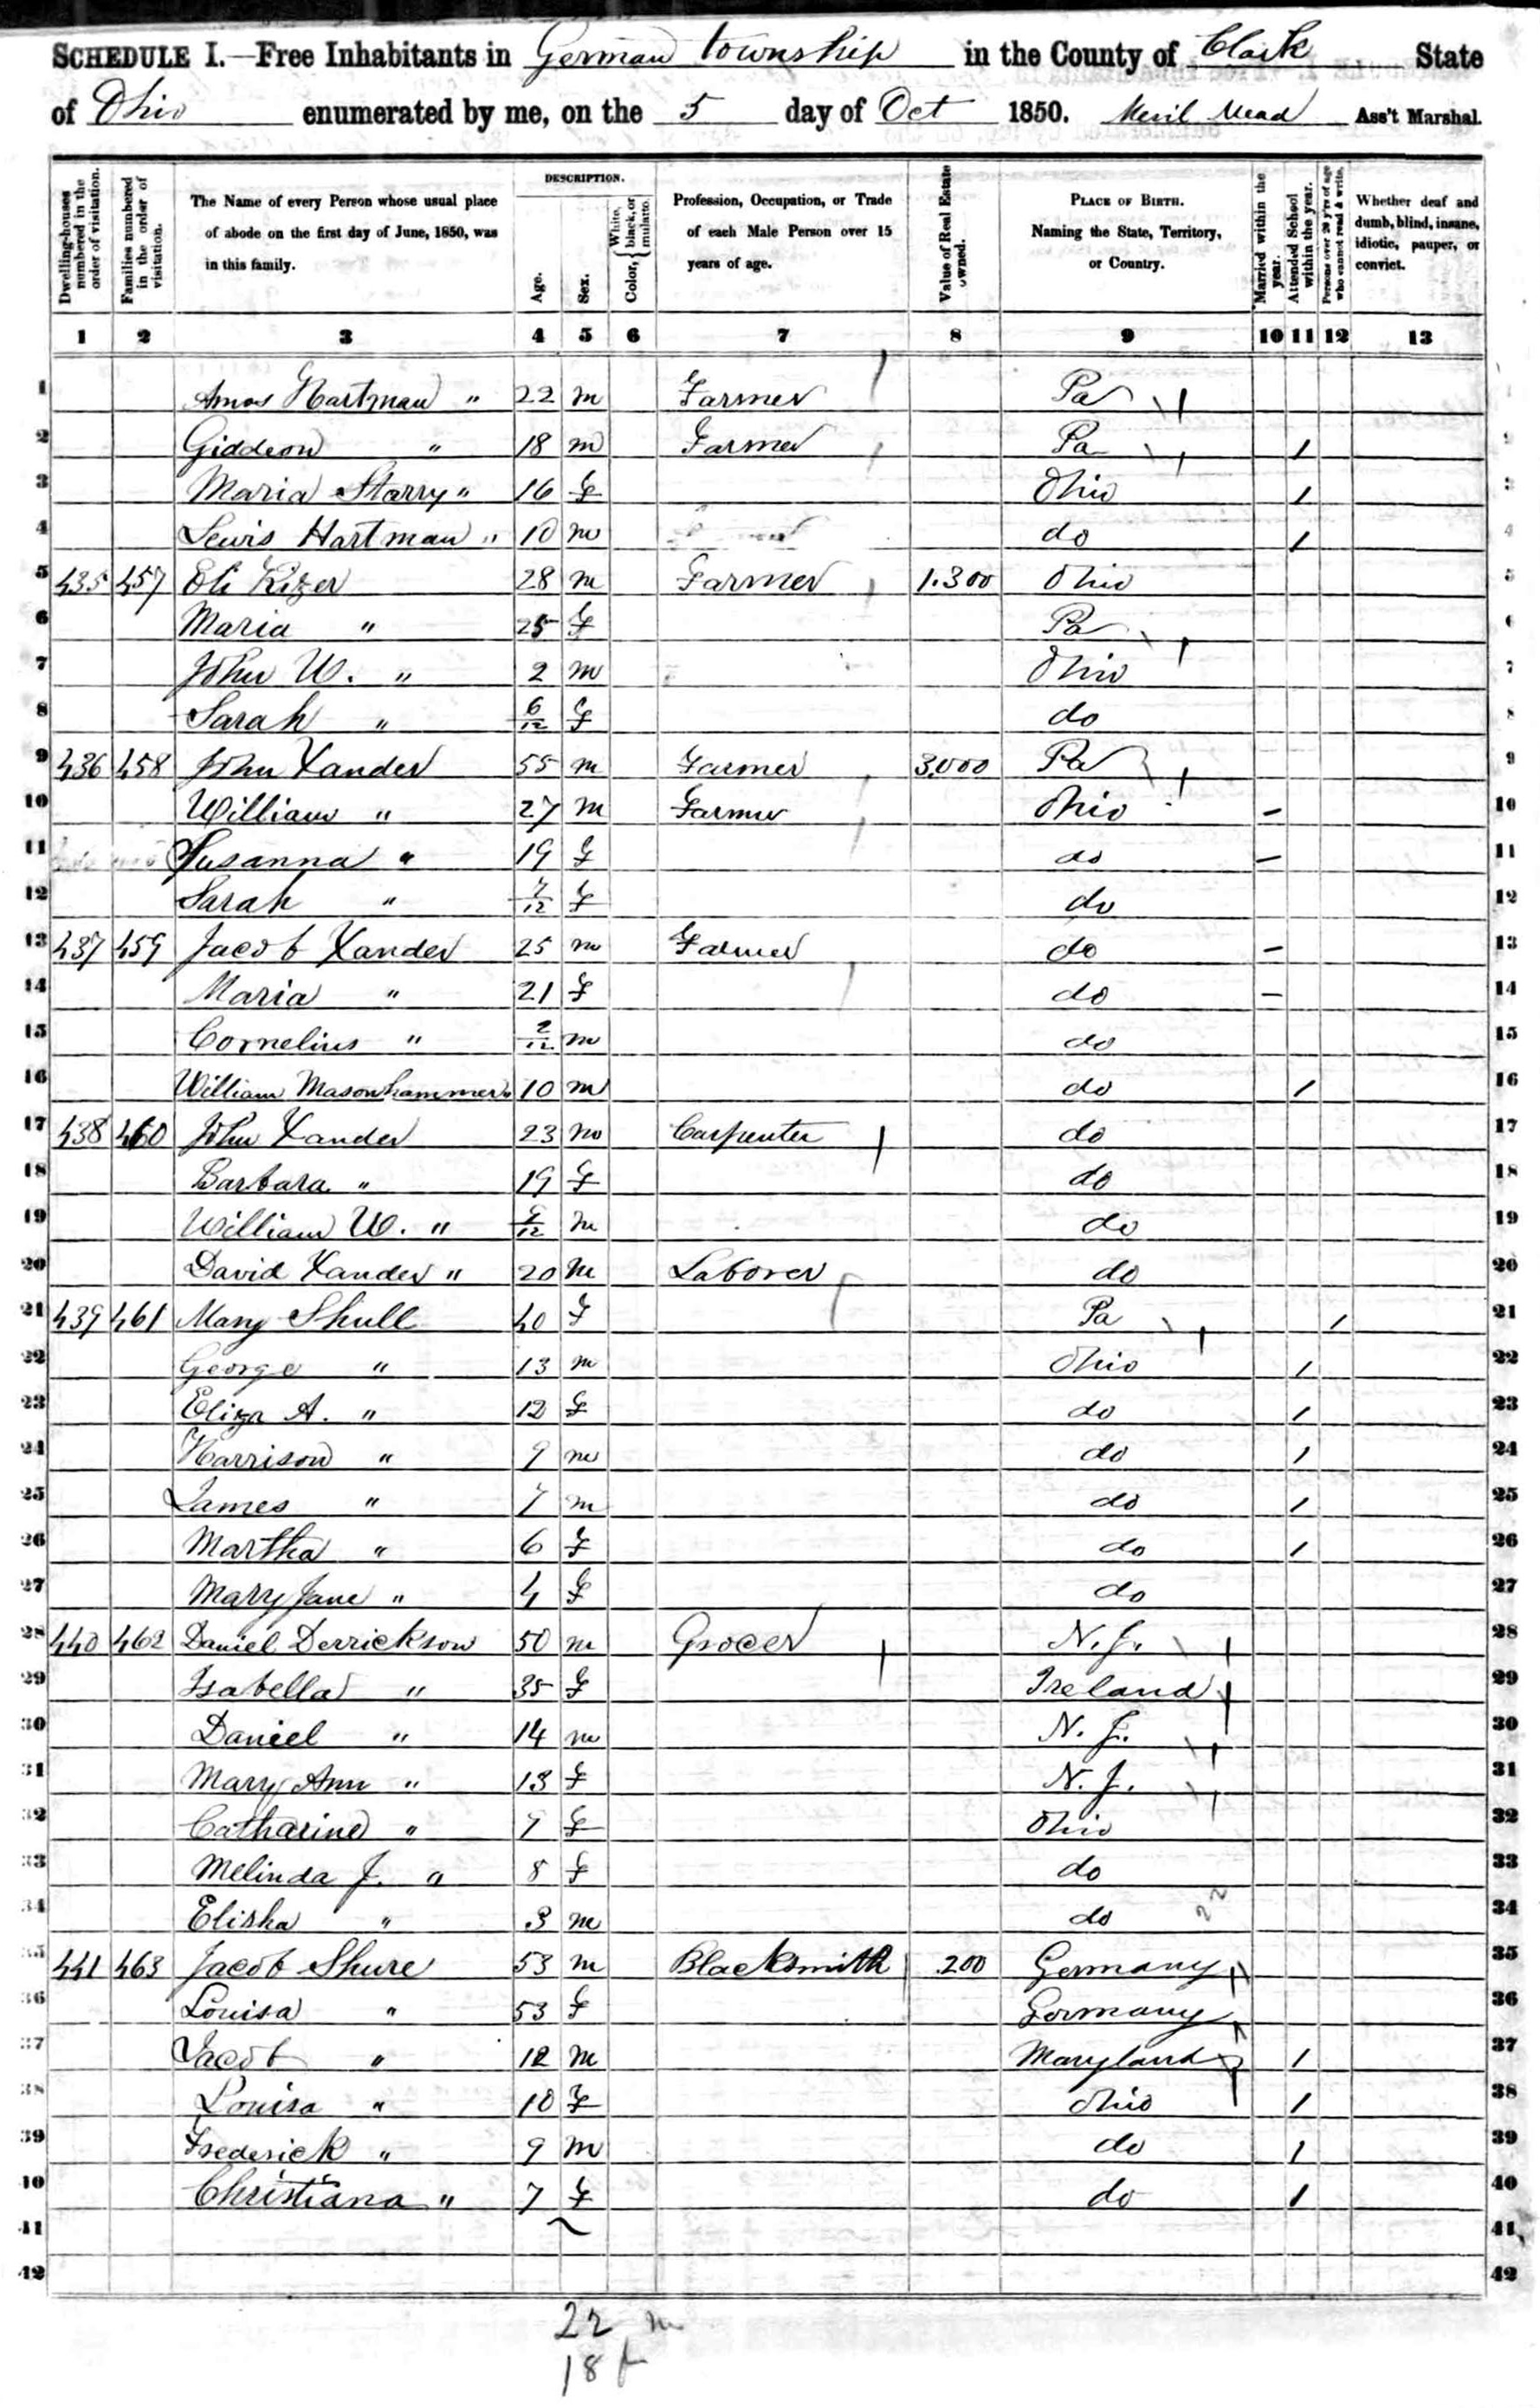 SCHEDULE I.—Free Inhabitants in German township in the County of Clark State
of Ohio enumerated by me, on the 5 day of Oct 1850. Meril Mead Ass't Marshal.
Dwelling-houses numbered in the order of visitation.
Families numbered in the order of visitation.
The Name of every Person whose usual place of abode on the first day of June, 1850, was in this family.
DESCRIPTION.
Age.
Sex.
Color, { White, black, or mulatto.
Profession, Occupation, or Trade of each Male Person over 15 years of age.
Value of Real Estate owned.
PLACE OF BIRTH. Naming the State, Territory, or Country.
Married within the year.
Attended School within the year.
Persons over 20 y'rs of age who cannot read & write.
Whether deaf and dumb, blind, insane, idiotic, pauper, or convict.
1 2 3 4 5 6 7 8 9 10 11 12 13
1 Amos Hartman " 22 m Farmer Pa 1
2 Giddeon " 18 m Farmer Pa 1 2
3 Maria Starry " 16 f Ohio 1 3
4 Lewis Hartman " 10 m do 1 4
5 435 457 Eli Kizer 28 m Farmer 1.300 Ohio 5
6 Maria " 25 f Pa 6
7 John W. " 2 m Ohio 7
8 Sarah " 6/12 f do 8
9 436 458 John Xander 55 m Farmer 3,000 Pa 9
10 William " 27 m Farmer Ohio – 10
11 Susanna " 19 f do – 11
12 Sarah " 7/12 f do 12
13 437 459 Jacob Xander 25 m Farmer do – 13
14 Maria " 21 f do – 14
15 Cornelius " 2/12 m do 15
16 William Masonhammer " 10 m do 1 16
17 438 460 John Xander 23 m Carpenter do 17
18 Barbara " 19 f do 18
19 William W. " /12 m do 19
20 David Xander " 20 m Laborer do 20
21 439 461 Mary Shull 40 f Pa 1 21
22 George " 13 m Ohio 1 22
23 Eliza A. " 12 f do 1 23
24 Harrison " 9 m do 1 24
25 James " 7 m do 1 25
26 Martha " 6 f do 1 26
27 Mary Jane " 4 f do 27
28 440 462 Daniel Derrickson 50 m Grocer N.J. 28
29 Isabella " 35 f Ireland 29
30 Daniel " 14 m N.J. 30
31 Mary Ann " 13 f N.J. 31
32 Catharine " 9 f Ohio 32
33 Melinda J. " 8 f do 33
34 Elisha " 3 m do 22 34
35 441 463 Jacob Shure 53 m Blacksmith 200 Germany 35
36 Louisa " 53 f Germany 36
37 Jacob " 12 m Maryland 1 37
38 Louisa " 10 f Ohio 1 38
39 Frederick " 9 m do 1 39
40 Christiana " 7 f do 1 40
41 41
42 42
22 m
18 f